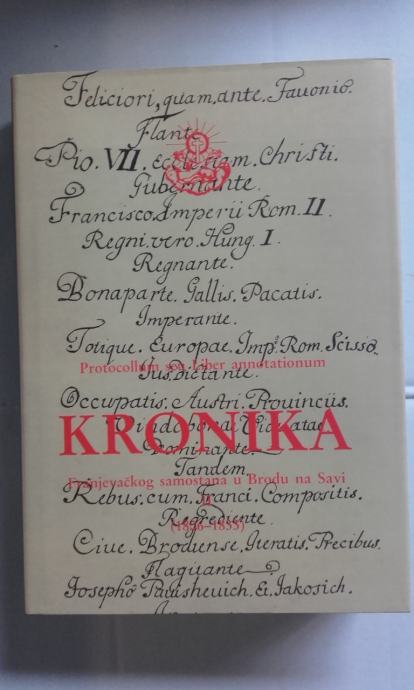 Feliciori, quam, ante, Favonio.
Flante
Pio. VII. ecclesiam. Christi.
Gubernante.
Francisco. Imperii Rom. II.
Regni. vero. Hung. I.
Regnante.
Bonaparte. Gallis. Pacatis.
Imperante.
Totique. Europae. Imp. Rom. Scisso.
Protocollum seu Liber annotationum
Jus. Dictante.
Occupatis. Austri. Provinciis.
KRONIKA
Dominante.
Tandem.
Franjevačkog samostana u Brodu na Savi
Rebus. cum. Franci. Compositis.
II
(1806–1833)
Regrediente.
Cive. Brodiense. Iteratis. Precibus.
Flagitante
Josepho
Et. Jakosich.